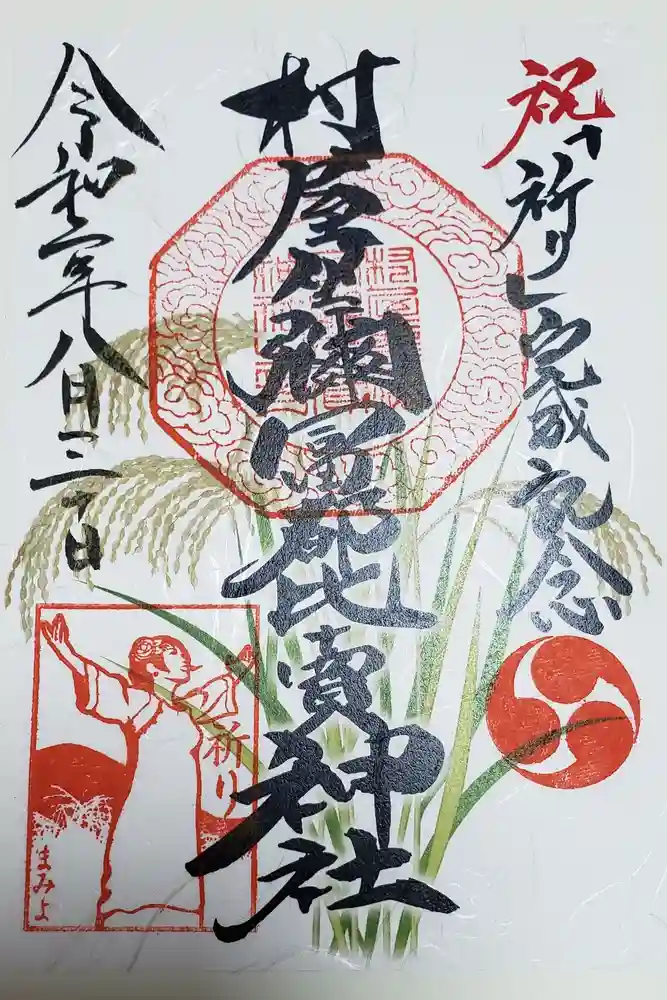 祝「祈り」完成記念
村屋坐彌冨都比賣神社
令和年八月三十日
祈り
まみよ